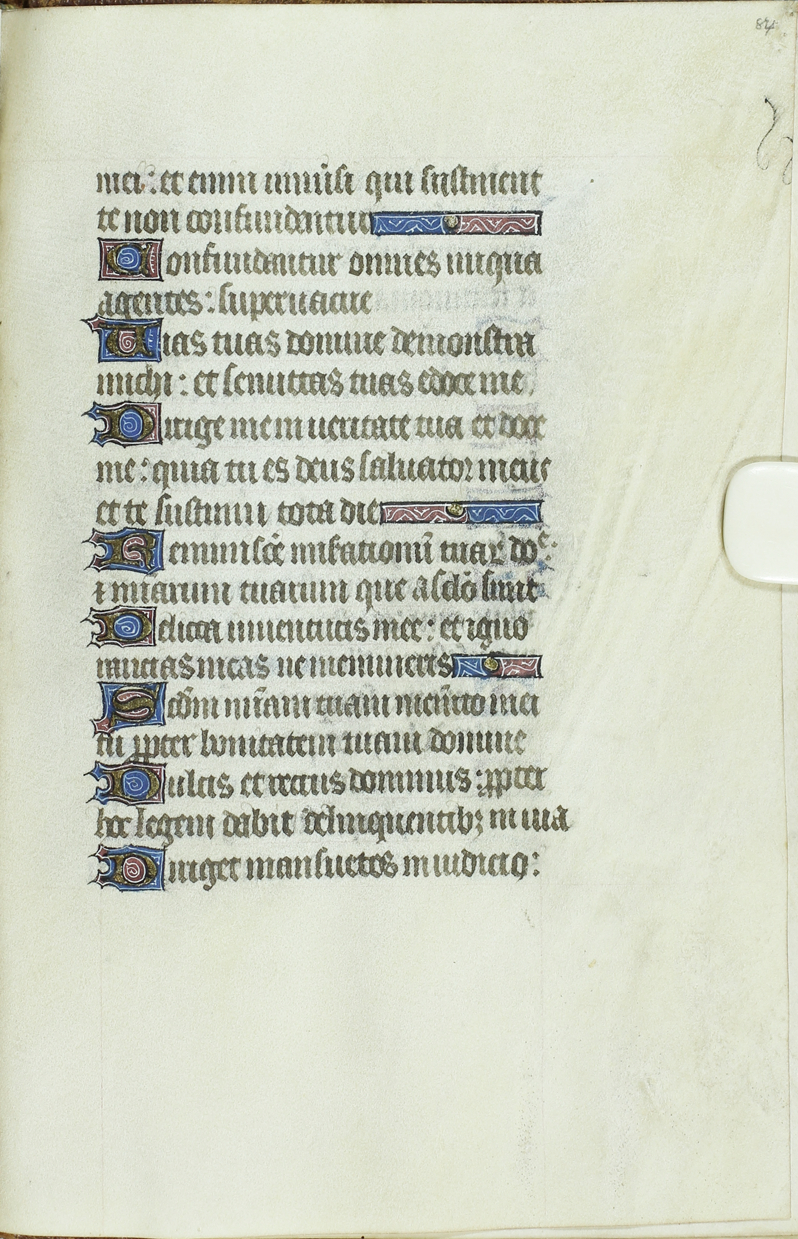 84
mei : et enim uniũsi qui sustinent
te non confundentur
Confundantur omnes iniqua
agentes : superuacue
Uias tuas domine demonstra
michi : et semittas tuas edoce me
Dirige me in ueritate tua et doce
me : quia tu es deus saluator meus
et te sustinui tota die
Reminiscẽ misationũ tuaꝝ do
⁊ miarum tuarum que a sclõ sunt
Delicta iuuentutis mee : et igno
rancias meas ne memineris
Scdm miam tuam memto mei
tu ꝓpter bonitatem tuam domine
Dulcis et rectus dominus : ꝓpter
hoc legem dabit delinquentibꝫ in uia
Diriget mansuetos in iudicio :